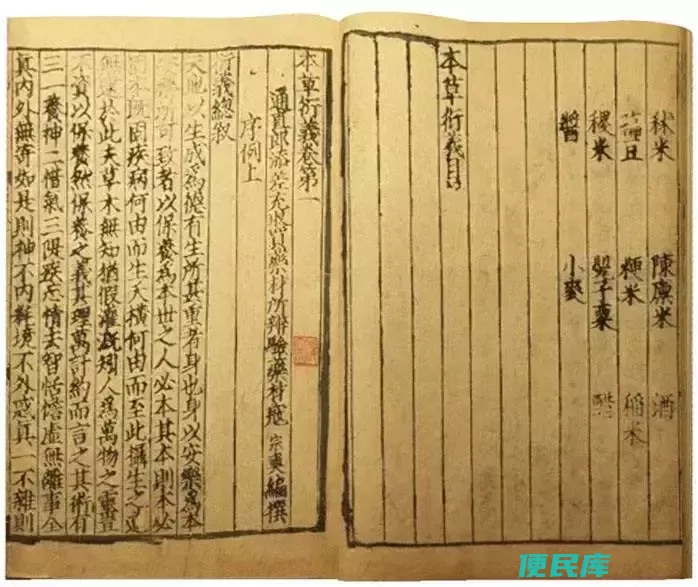 秫米 陳廩米 酒
豆 粳米 稻米
稷米 罌子粟
醬 小麥
本草衍義目
本草衍義卷第一
通直郎添差充收買藥材所辨驗藥材寇 宗奭編撰
序例上
衍義總叙
天地以生成爲德有生所甚重者身也身以安樂爲本
安樂所可致者以保養爲本世之人必本其本則本必
固本既固疾病何由而生夭橫何由而至此攝生之道
無逮於此夫草木無知猶假灌溉矧人爲萬物之靈豈
不資以保養然保養之義其理萬計約而言之其術有
三一養神二惜氣三隄疾忘情去智恬憺虛無離事全
真內外無寄如是則神不內耗境不外惑真一不雜則
便民库